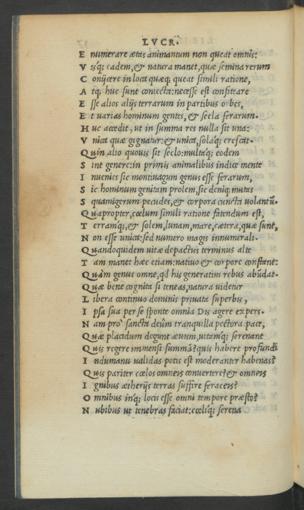 LVCR.
E numerare ætas animantum non queat omnis:
V isq; eadem, & natura manet, quæ semina rerum
C onijcere in loca quæq; queat simili ratione,
A tq; huc sunt coniecta: necesse est confiteare
E sse alios alijs terrarum in partibus orbes,
E t varias hominum gentes, & secla ferarum.
H uc accedit, ut in summa res nulla sit una:
V nica quæ gignatur: & unica, solaq; crescat:
Q uin, alio quouis sit seclo: multæq; eodem
S int genere: in primis animalibus indice mente
I nuenies sic montiuagum genus esse ferarum,
S ic hominum genitam prolem, sic deniq; mutas
S quamigerum pecudes, & corpora cuncta volantū.
Q uapropter, cœlum simili ratione fatendum est,
T erramq;, & solem, lunam, mare, cætera, quæ sunt,
N on esse unica: sed numero magis innumerali.
Q uandoquidem uitæ depactus terminus alte
T am manet hæc etiam: natiuo & corpore constant:
Q uàm genus omne, qd his generatim rebus abūdat.
Q uæ bene cognita si teneas, natura videtur
L ibera continuo dominis priuata superbis,
I psa sua per se sponte omnia Dis agere expers.
N am pro' sancta deûm tranquilla pectora pace,
Q uæ placidum degunt æuom, uitamq; serenam:
Q uis regere immensi summā? quis habere profundi
I ndumanu validas potis est moderanter habenas?
Q uis pariter cœlos omneis conuertere? & omneis
I gnibus ætherijs terras suffire feraces?
O mnibus inq; locis esse omni tempore præstò?
N ubibus ut tenebras faciat: cœliq; serena